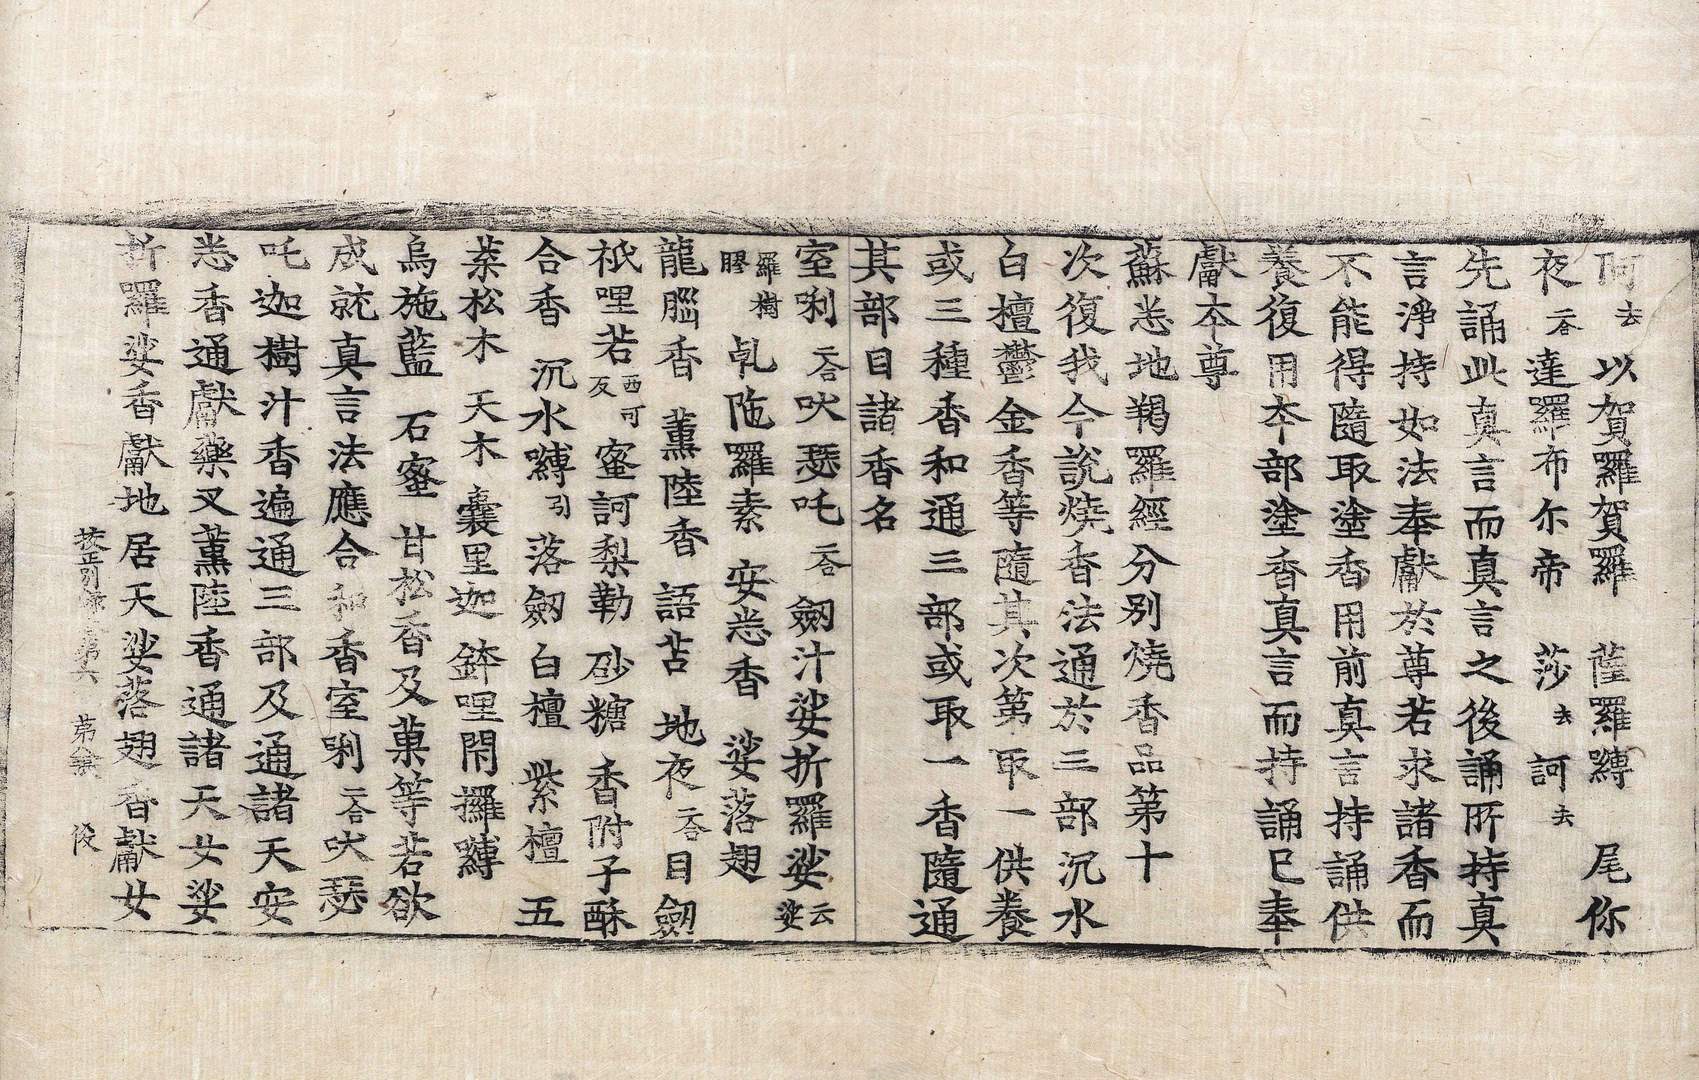 阿去 以賀羅賀羅 薩羅縛 尾你
夜二合 達羅布尒帝 莎去 訶去
先誦此真言而真言之後誦所持真
言淨持如法奉獻於尊若求諸香而
不能得隨取塗香用前真言持誦供
養復用本部塗香真言而持誦已奉
獻本尊
蘇悉地羯羅經分別燒香品第十
次復我今說燒香法通於三部沉水
白檀鬱金香等隨其次第取一供養
或三種香和通三部或取一香隨通
其部目諸香名
室唎二合吠瑟吒二合 劒汁娑折羅娑云娑
羅樹膠 乹陁羅素 安悉香 娑落翅
龍腦香 薰陸香 語苫 地夜二合目劒
祇哩若西可反 蜜訶梨勒 砂糖 香附子酥
合香 沉水嚩引 落劒 白檀 紫檀 五
葉松木 天木 囊里迦 鉢哩閇攞嚩
烏施藍 石蜜 甘松香及菓等若欲
成就真言法應合和香室唎二合吠瑟
吒迦樹汁香遍通三部及通諸天安
悉香通獻藥叉薰陸香通諸天女娑
折羅娑香獻地居天娑落翅香獻女
校正別錄卷第六 第 張 俊